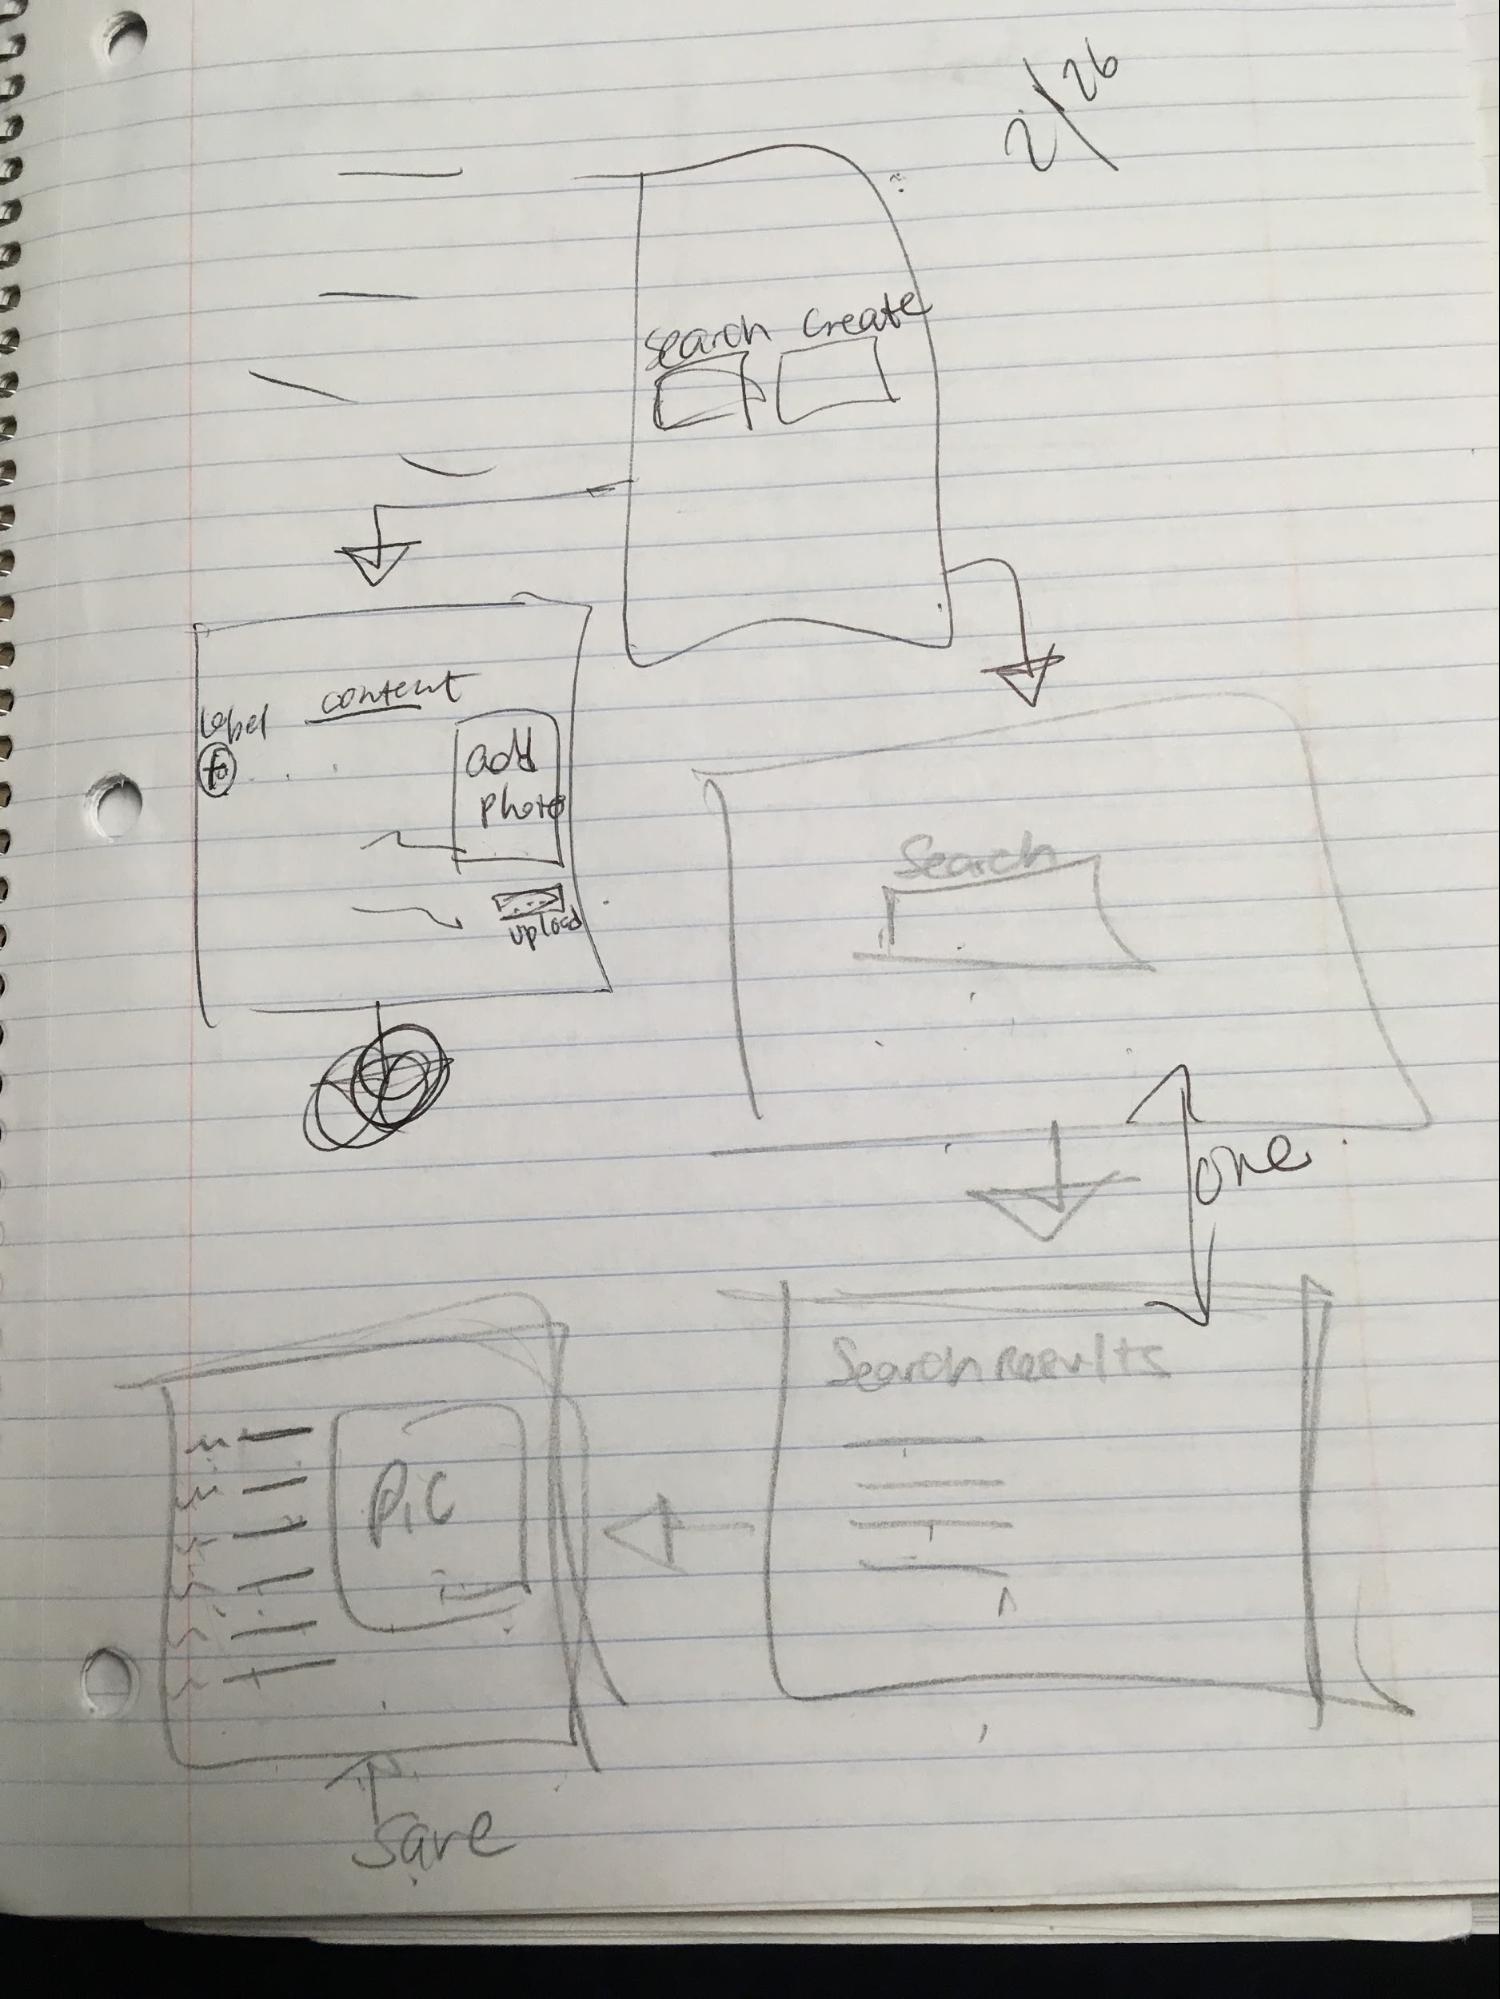 2/26
search create
content
Label
add
photo
upload
Search
one
Search Results
Pic
Save